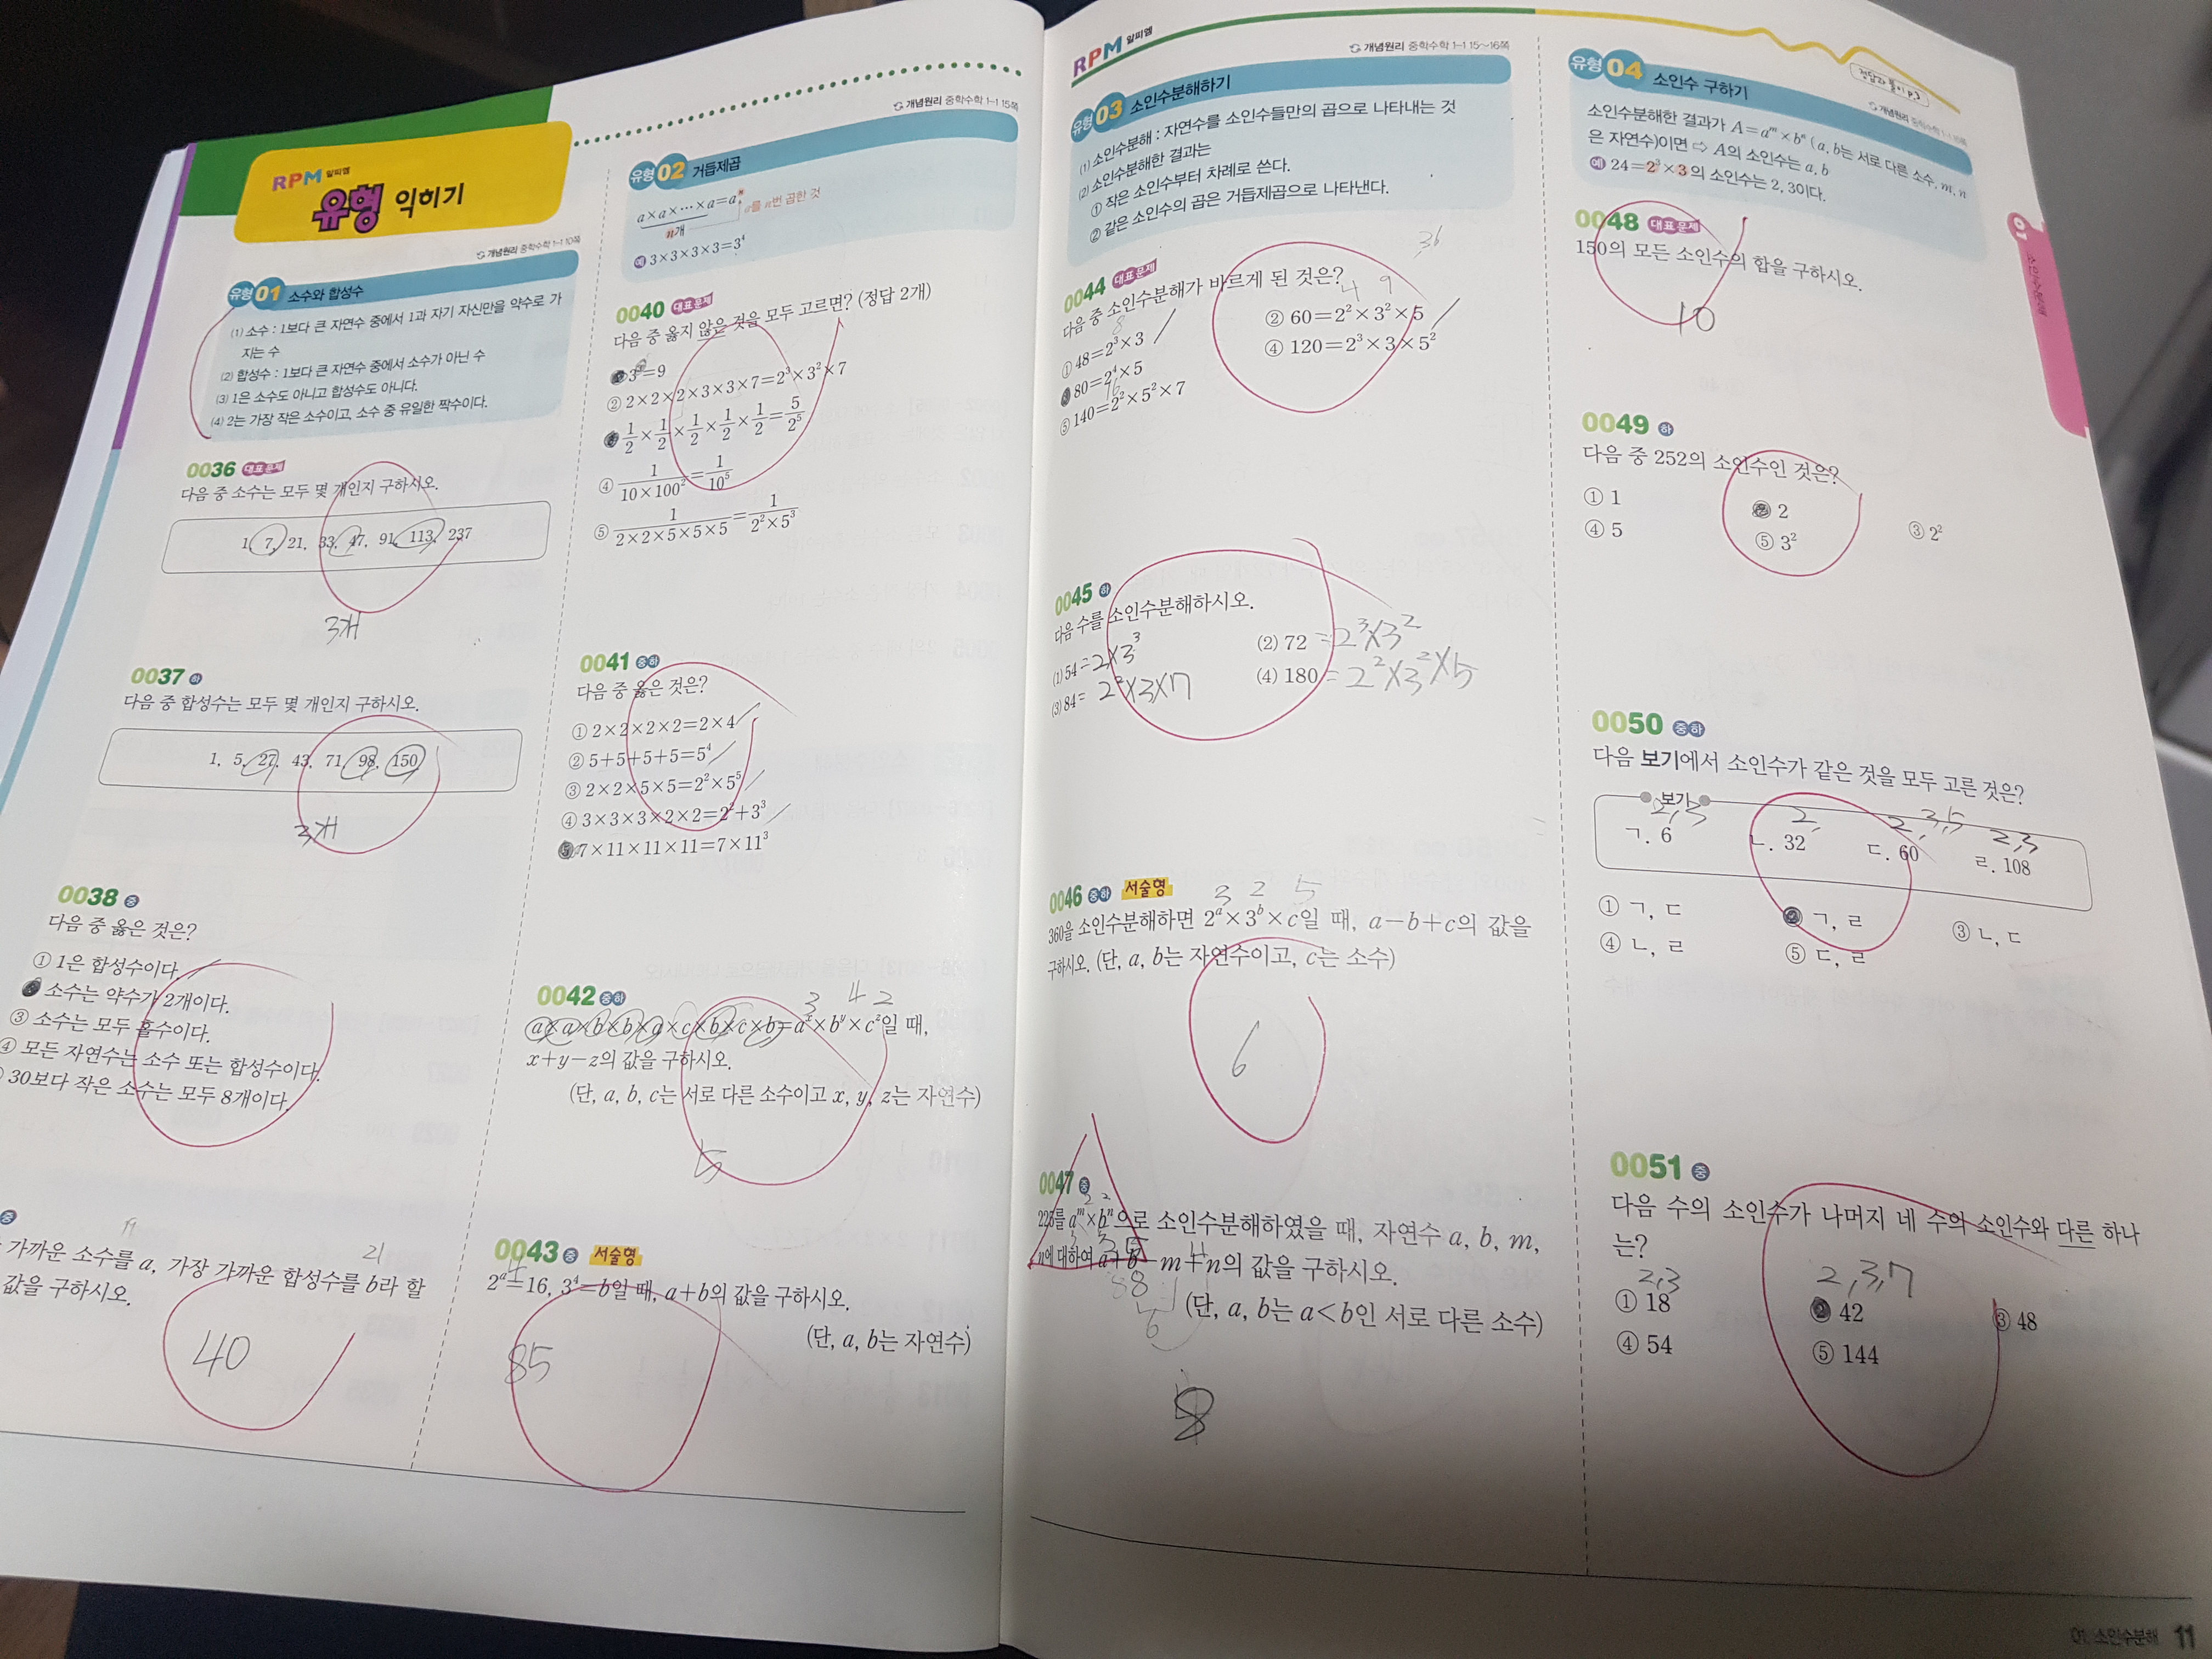 RPM 알피엠
유형 익히기
개념원리 중학수학 1-1 10쪽
유형 01 소수와 합성수
(1) 소수 : 1보다 큰 자연수 중에서 1과 자기 자신만을 약수로 가
지는 수
(2) 합성수 : 1보다 큰 자연수 중에서 소수가 아닌 수
(3) 1은 소수도 아니고 합성수도 아니다.
(4) 2는 가장 작은 소수이고, 소수 중 유일한 짝수이다.
0036 대표문제
다음 중 소수는 모두 몇 개인지 구하시오.
1, 7, 21, 33, 47, 91, 113, 237
3개
0037 하
다음 중 합성수는 모두 몇 개인지 구하시오.
1, 5, 27, 43, 71, 98, 150
3개
0038 중
다음 중 옳은 것은?
① 1은 합성수이다.
소수는 약수가 2개이다.
③ 소수는 모두 홀수이다.
④ 모든 자연수는 소수 또는 합성수이다.
30보다 작은 소수는 모두 8개이다.
중
19 21
가까운 소수를 a, 가장 가까운 합성수를 b라 할
값을 구하시오.
40
개념원리 중학수학 1-1 15쪽
유형 02 거듭제곱
a×a×⋯×a=aⁿ a를 n번 곱한 것
n개
예 3×3×3×3=3⁴
0040 대표문제
다음 중 옳지 않은 것을 모두 고르면? (정답 2개)
3²=9
② 2×2×2×3×3×7=2³×3²×7
1/2×1/2×1/2×1/2×1/2=5/2⁵
④ 1/(10×100²)=1/10⁵
⑤ 1/(2×2×5×5×5)=1/(2²×5³)
0041 중하
다음 중 옳은 것은?
① 2×2×2×2=2×4
② 5+5+5+5=5⁴
③ 2×2×5×5=2²×5⁵
④ 3×3×3×2×2=2²+3³
⑤ 7×11×11×11=7×11³
0042 중하
3 4 2
a×a×b×b×a×c×b×c×b=aˣ×bʸ×cᶻ일 때,
x+y-z의 값을 구하시오.
(단, a, b, c는 서로 다른 소수이고 x, y, z는 자연수)
5
0043 중 서술형
4
2ᵃ=16, 3⁴=b일 때, a+b의 값을 구하시오.
(단, a, b는 자연수)
85
RPM 알피엠
개념원리 중학수학 1-1 15~16쪽
유형 03 소인수분해하기
(1) 소인수분해 : 자연수를 소인수들만의 곱으로 나타내는 것
(2) 소인수분해한 결과는
① 작은 소인수부터 차례로 쓴다.
② 같은 소인수의 곱은 거듭제곱으로 나타낸다.
36
0044 대표문제
다음 중 소인수분해가 바르게 된 것은?
4 9
8
① 48=2³×3
② 60=2²×3²×5
80=2⁴×5
④ 120=2³×3×5²
16
⑤ 140=2²×5²×7
0045 하
다음 수를 소인수분해하시오.
(1) 54 =2×3³
(2) 72 =2³×3²
(3) 84= 2²×3×7
(4) 180 =2²×3²×5
0046 중하 서술형
3 2 5
360을 소인수분해하면 2ᵃ×3ᵇ×c일 때, a-b+c의 값을
구하시오. (단, a, b는 자연수이고, c는 소수)
6
0047 중
2 2
225를 aᵐ×bⁿ으로 소인수분해하였을 때, 자연수 a, b, m,
3 5
n에 대하여 a+b-m+n의 값을 구하시오.
(단, a, b는 a<b인 서로 다른 소수)
8
유형 04 소인수 구하기
정답과 풀이 p.3
개념원리 중학수학 1-1 16쪽
소인수분해한 결과가 A=aᵐ×bⁿ (a, b는 서로 다른 소수, m, n
은 자연수)이면 ⇨ A의 소인수는 a, b
예 24=2³×3의 소인수는 2, 3이다.
0048 대표문제
150의 모든 소인수의 합을 구하시오.
10
0049 하
다음 중 252의 소인수인 것은?
① 1
2
③ 2²
④ 5
⑤ 3²
0050 중하
다음 보기에서 소인수가 같은 것을 모두 고른 것은?
보기
2,3 2, 2,3,5 2,3
ㄱ. 6 ㄴ. 32 ㄷ. 60 ㄹ. 108
① ㄱ, ㄷ
ㄱ, ㄹ
③ ㄴ, ㄷ
④ ㄴ, ㄹ
⑤ ㄷ, ㄹ
0051 중
다음 수의 소인수가 나머지 네 수의 소인수와 다른 하나
는?
2,3 2,3,7
① 18
42
③ 48
④ 54
⑤ 144
01
소인수분해
01. 소인수분해 11